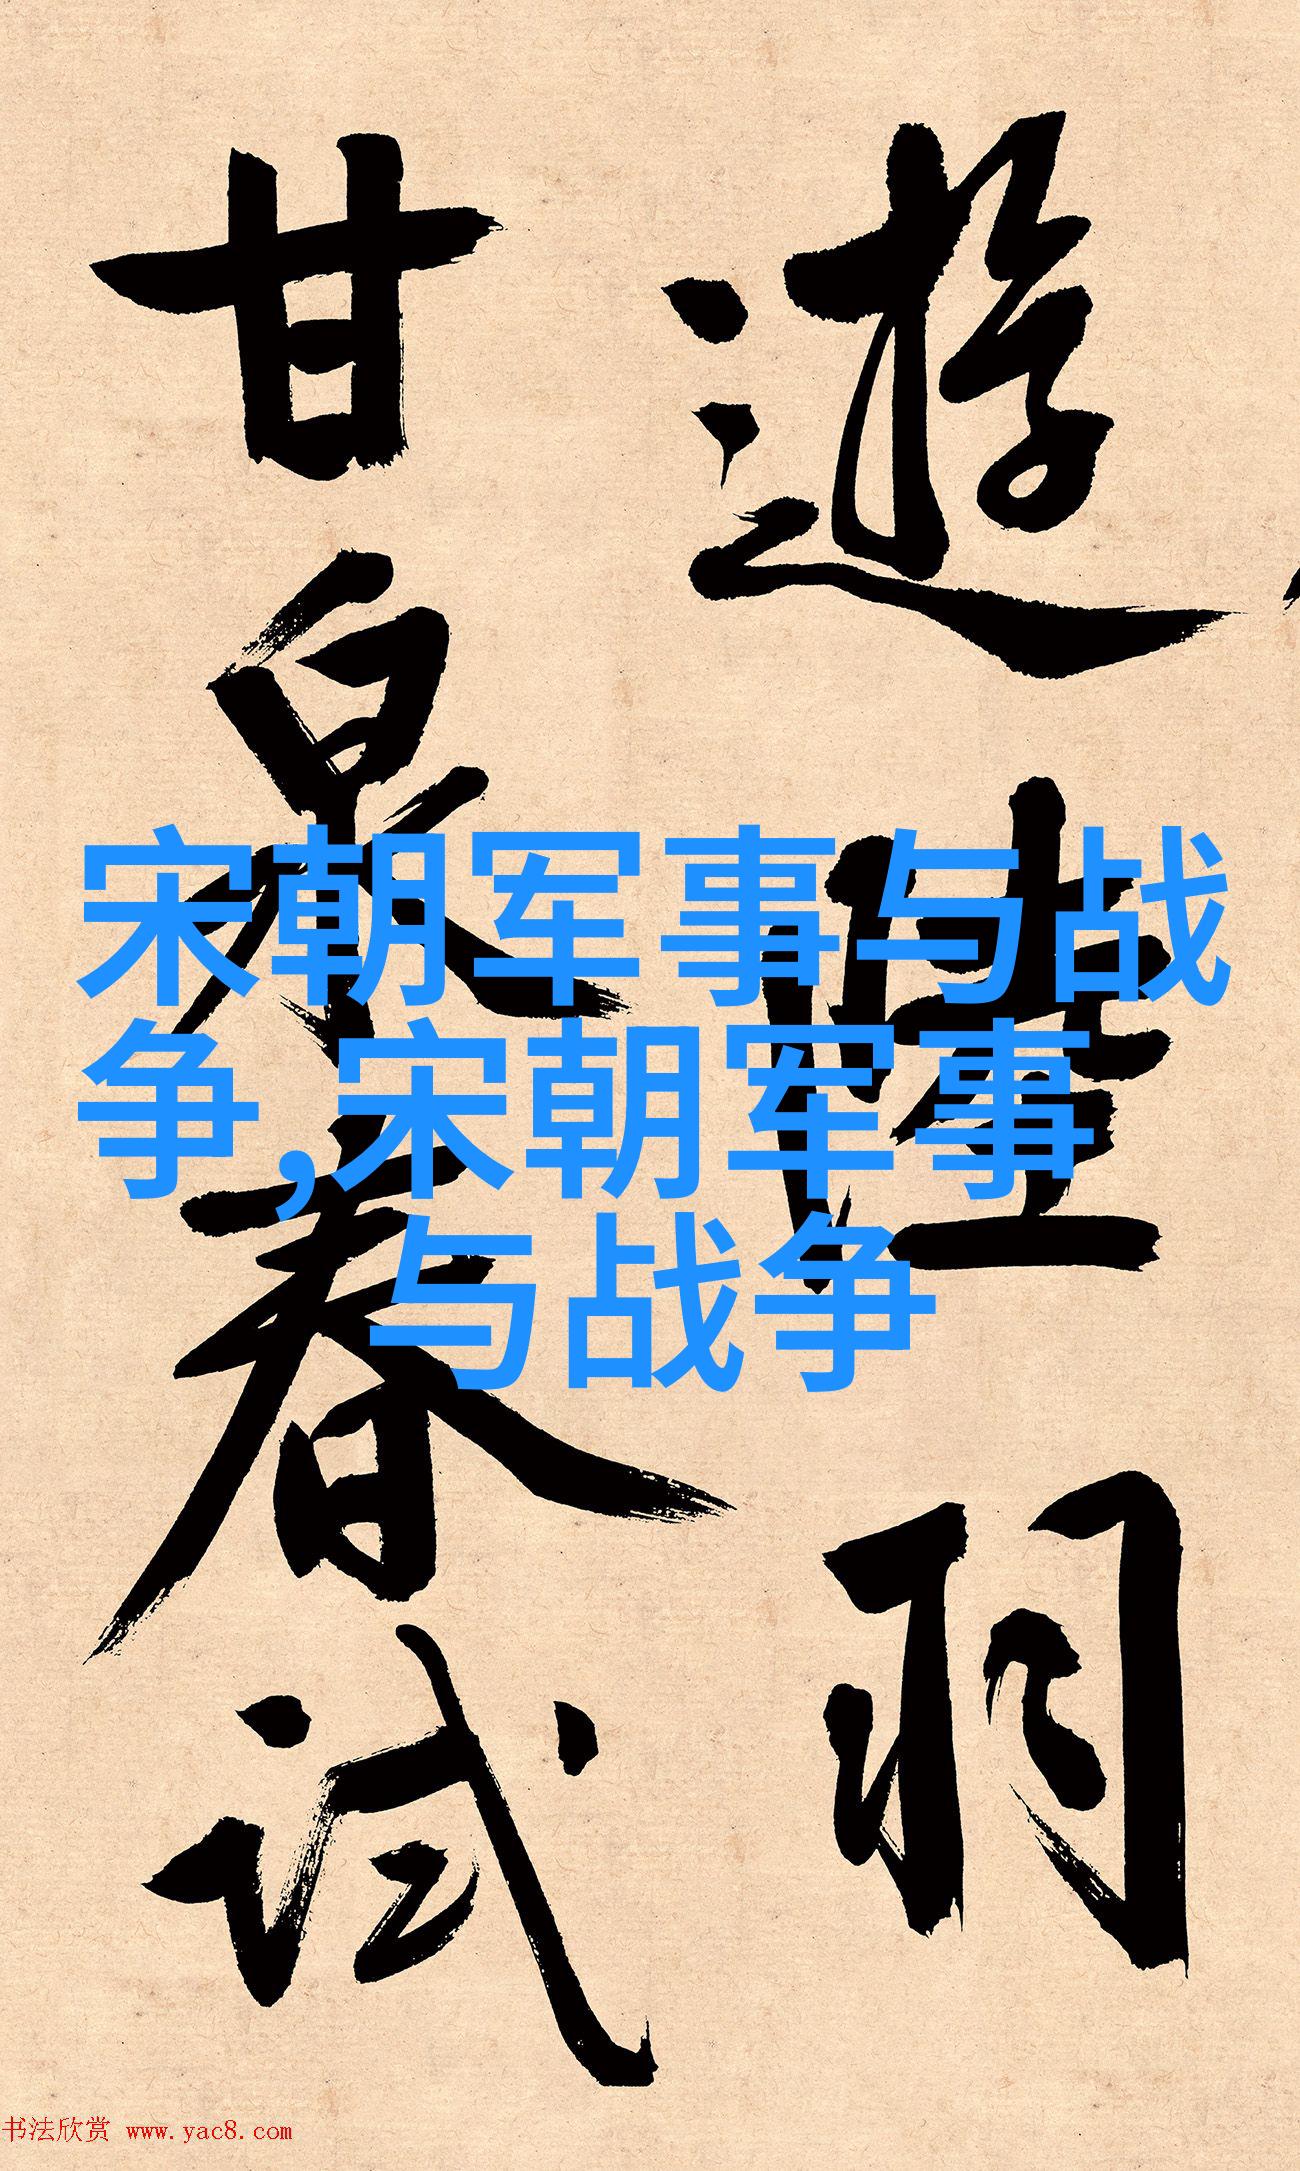 遊陸羽
甘泉春試
宋朝军事与战
争,宋朝军事
与战争
书法欣赏 www.yac8.com